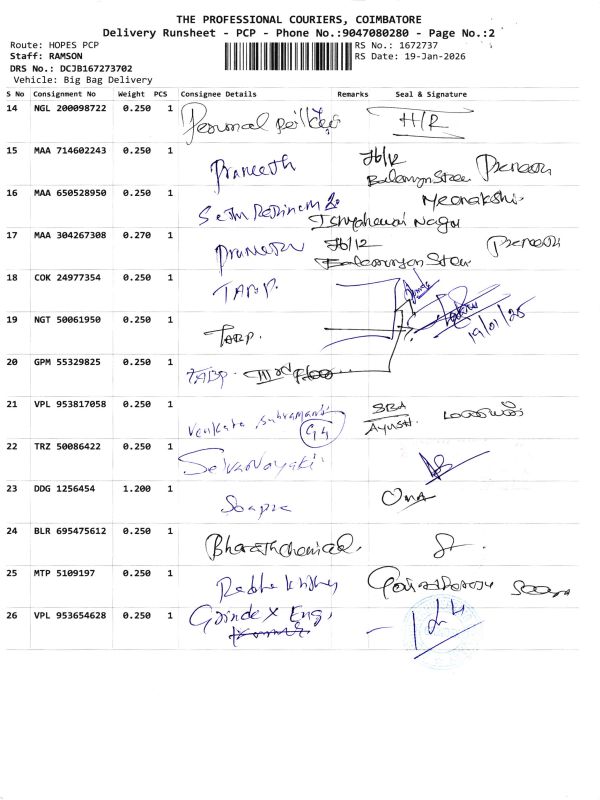 THE PROFESSIONAL COURIERS, COIMBATORE
Delivery Runsheet - PCP - Phone No.:9047080280 - Page No.:2
Route: HOPES PCP
Staff: RAMSON
DRS No.: DCJB167273702
Vehicle: Big Bag Delivery
RS No.: 1672737
RS Date: 19-Jan-2026
S No Consignment No Weight PCS Consignee Details Remarks Seal & Signature
14 NGL 200098722 0.250 1 Perumal H/R
15 MAA 714602243 0.250 1 Praneeth H/R Praneeth
16 MAA 650528950 0.250 1 Meenakshi
Nagar
17 MAA 304267308 0.270 1 Praneeth H/R Praneeth
18 COK 24977354 0.250 1 TABP.
19 NGT 50061950 0.250 1 TABP. 19/01/26
20 GPM 55329825 0.250 1 TABP. IIIrd floor
21 VPL 953817058 0.250 1 Venkata Subramani G4 SBA
Ayush
22 TRZ 50086422 0.250 1 Selvanayaki
23 DDG 1256454 1.200 1 UMA
24 BLR 695475612 0.250 1 Bharath chemical
25 MTP 5109197 0.250 1 Radha
26 VPL 953654628 0.250 1 Grindex Eng,